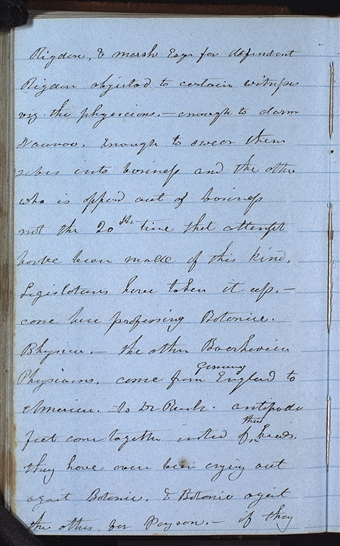 Rigdon, & Marsh Esqr for defendent
Rigdon objected to certain witness
viz the physicians. - enough to
enough to swear them
selves into bisiness and the other
who is oppind out of bisiness
not the 20th time that attempt
have been made of this kind.
Legislators have taken it up. -
come here professing Botanic
- the other Boerhavien
Physicians. come from Germany England to
America. to Dr Rush. antipode
feet come together insted of their heads.
they have ever been crying out
against Botanic, & Botanic against
the other for Poyson. - if they